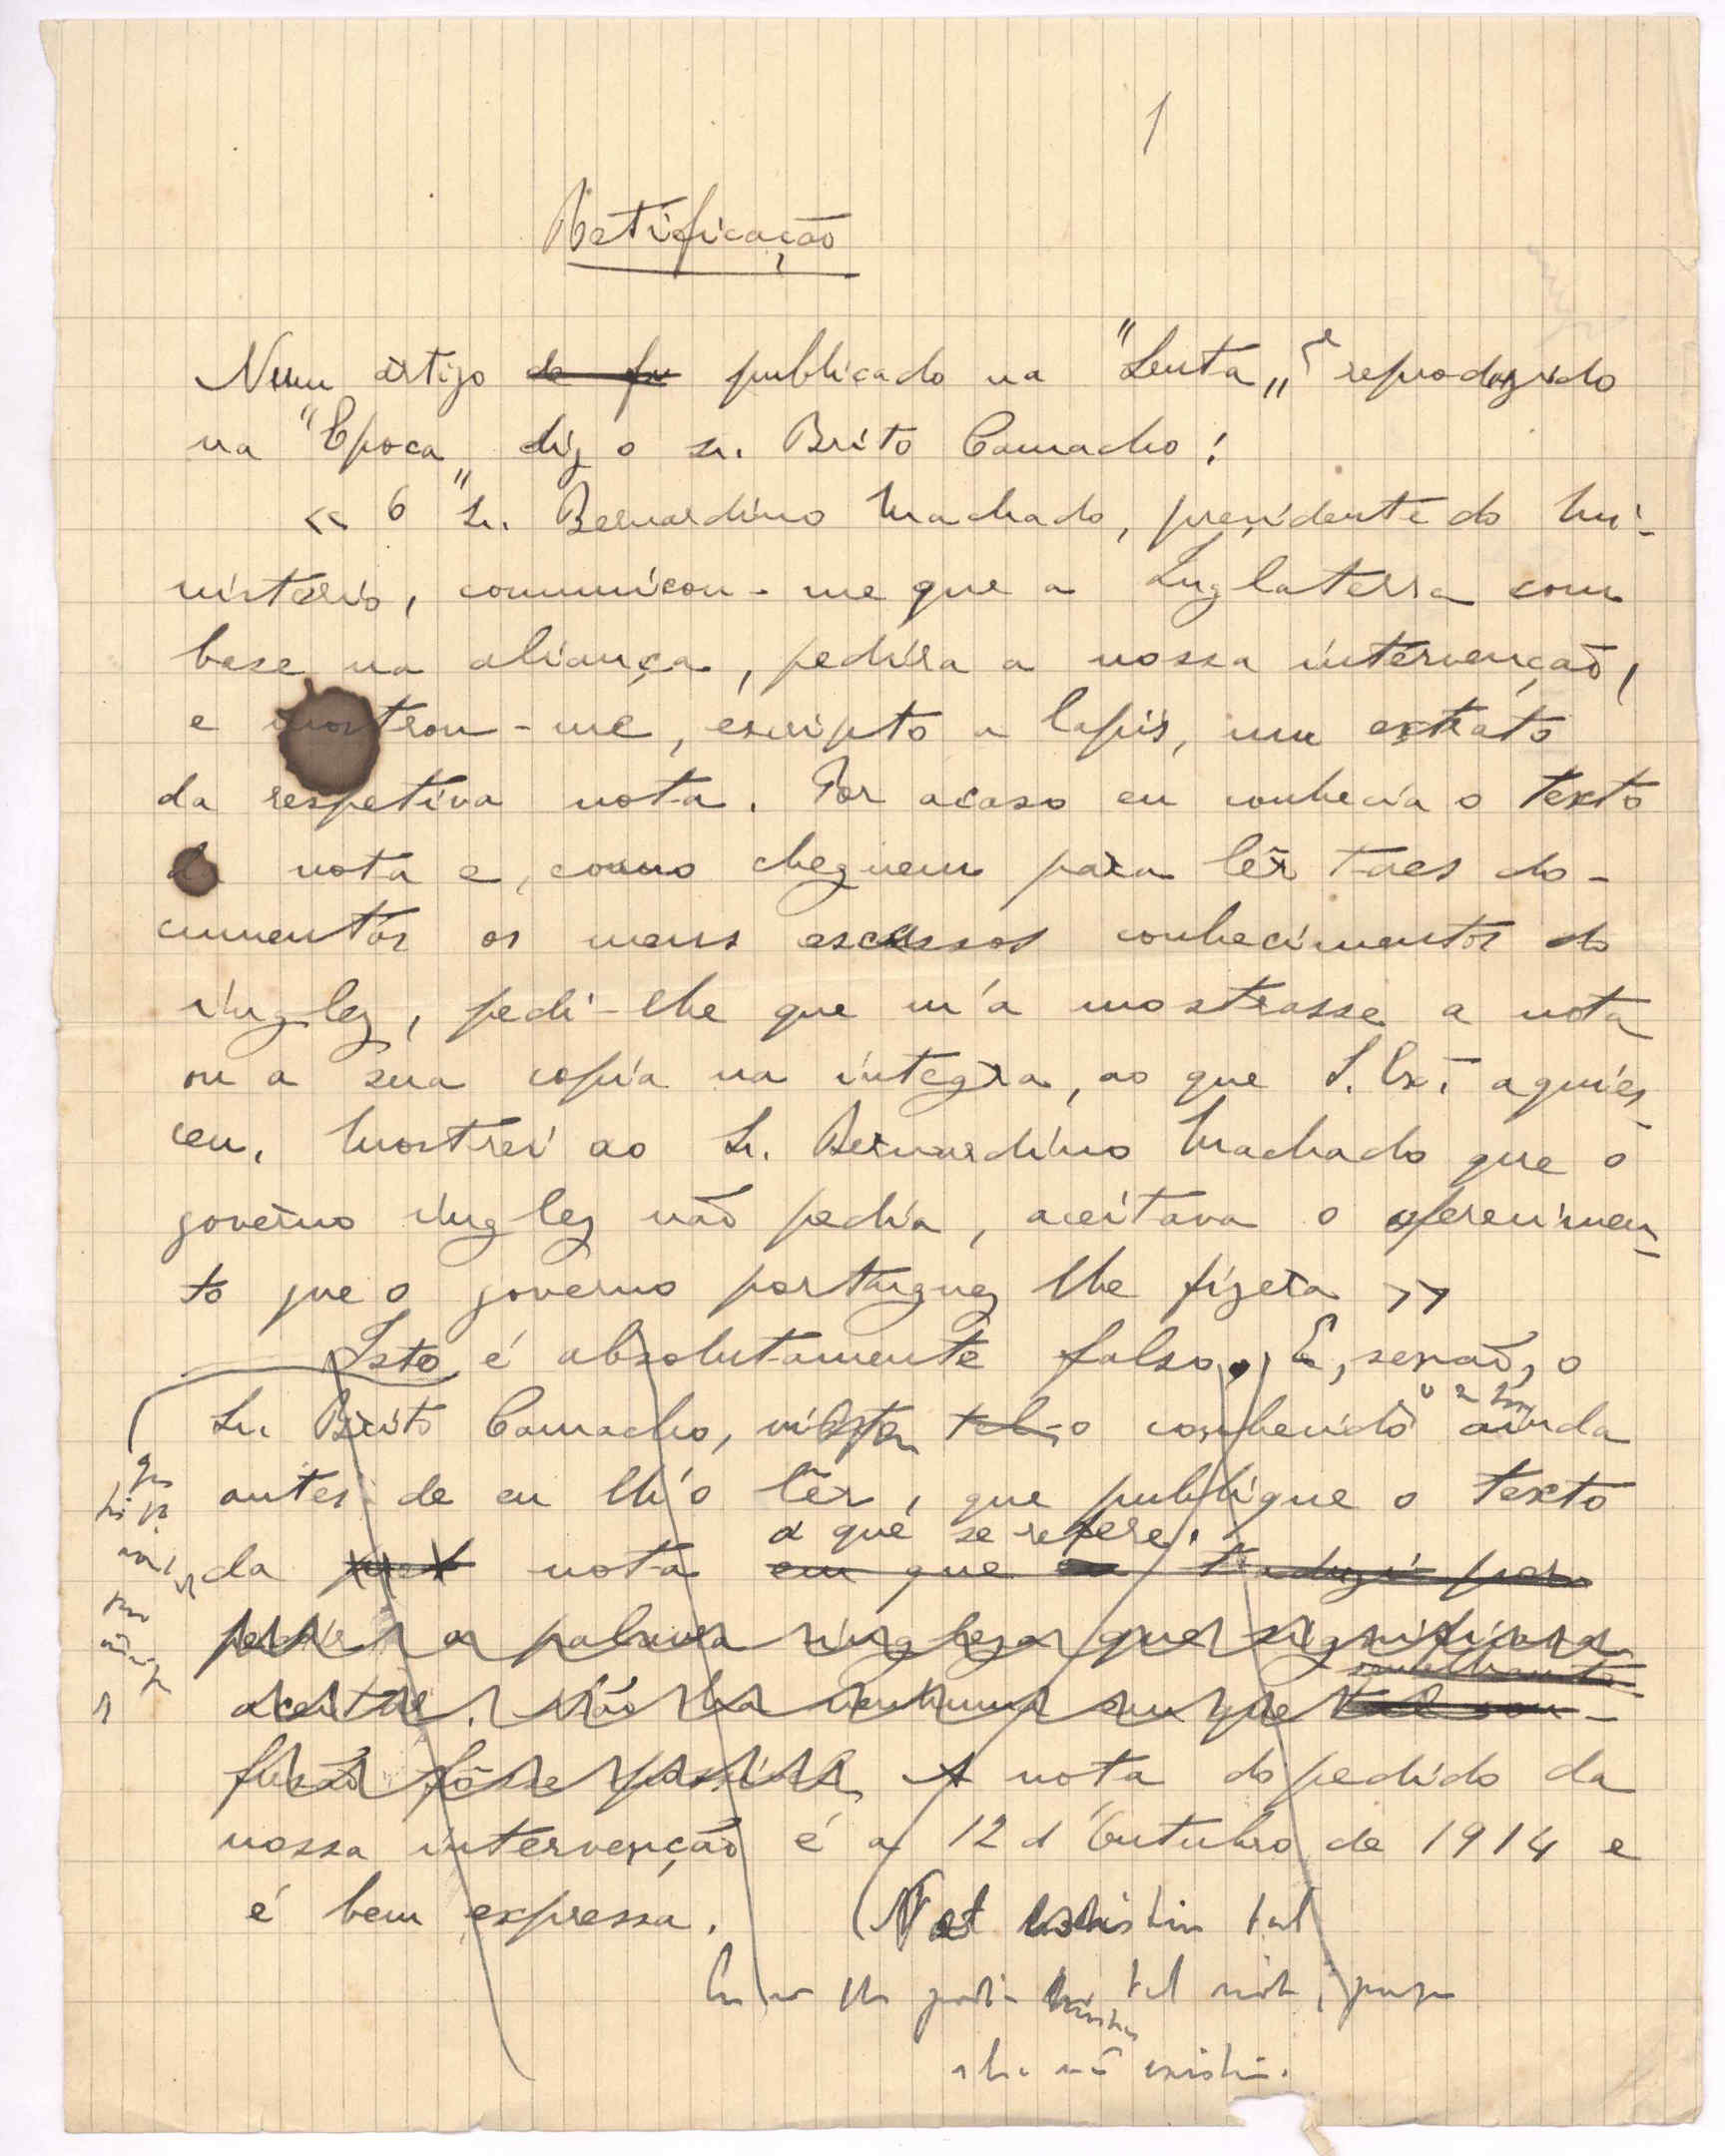 1
Retificação
Num artigo de fu publicado na "Lucta„ e reproduzido
na "Epoca„ diz o sr. Brito Camacho:
« O Sr. Bernardino Machado, presidente do Mi-
nisterio, communicou-me que a Inglaterra com
base na aliança, pedira a nossa intervenção,
e mostrou-me, escripto a lapis, um extrato
da respetiva nota. Por acaso eu conhecia o texto
da nota e, como cheguem para lêr taes do-
cumentos os meus escassos conhecimentos do
inglez, pedi-lhe que m'a mostrasse a nota
ou a sua copia na integra, ao que S. Exª aquies-
ceu. Mostrei ao Sr. Bernardino Machado que o
governo inglez não pedia, aceitava o oferecimen-
to que o governo portuguez lhe fizera »
Isto é absolutamente falso. E, senão, o
Sr. Brito Camacho, visto tel-o conhecido ainda
antes de eu lh'o lêr, que publique o texto
a que se refere.
da nota em que eu traduzi por
pedir a palavra ingleza que significava
aceitar. Não ha nenhuma em que tal con-
semelhante
fusão fôsse possivel. A nota do pedido da
nossa intervenção é a 12 d'Outubro de 1914 e
é bem expressa. (Not existia tal
lhe podia mostrar tal nota, porque
ela não existia.